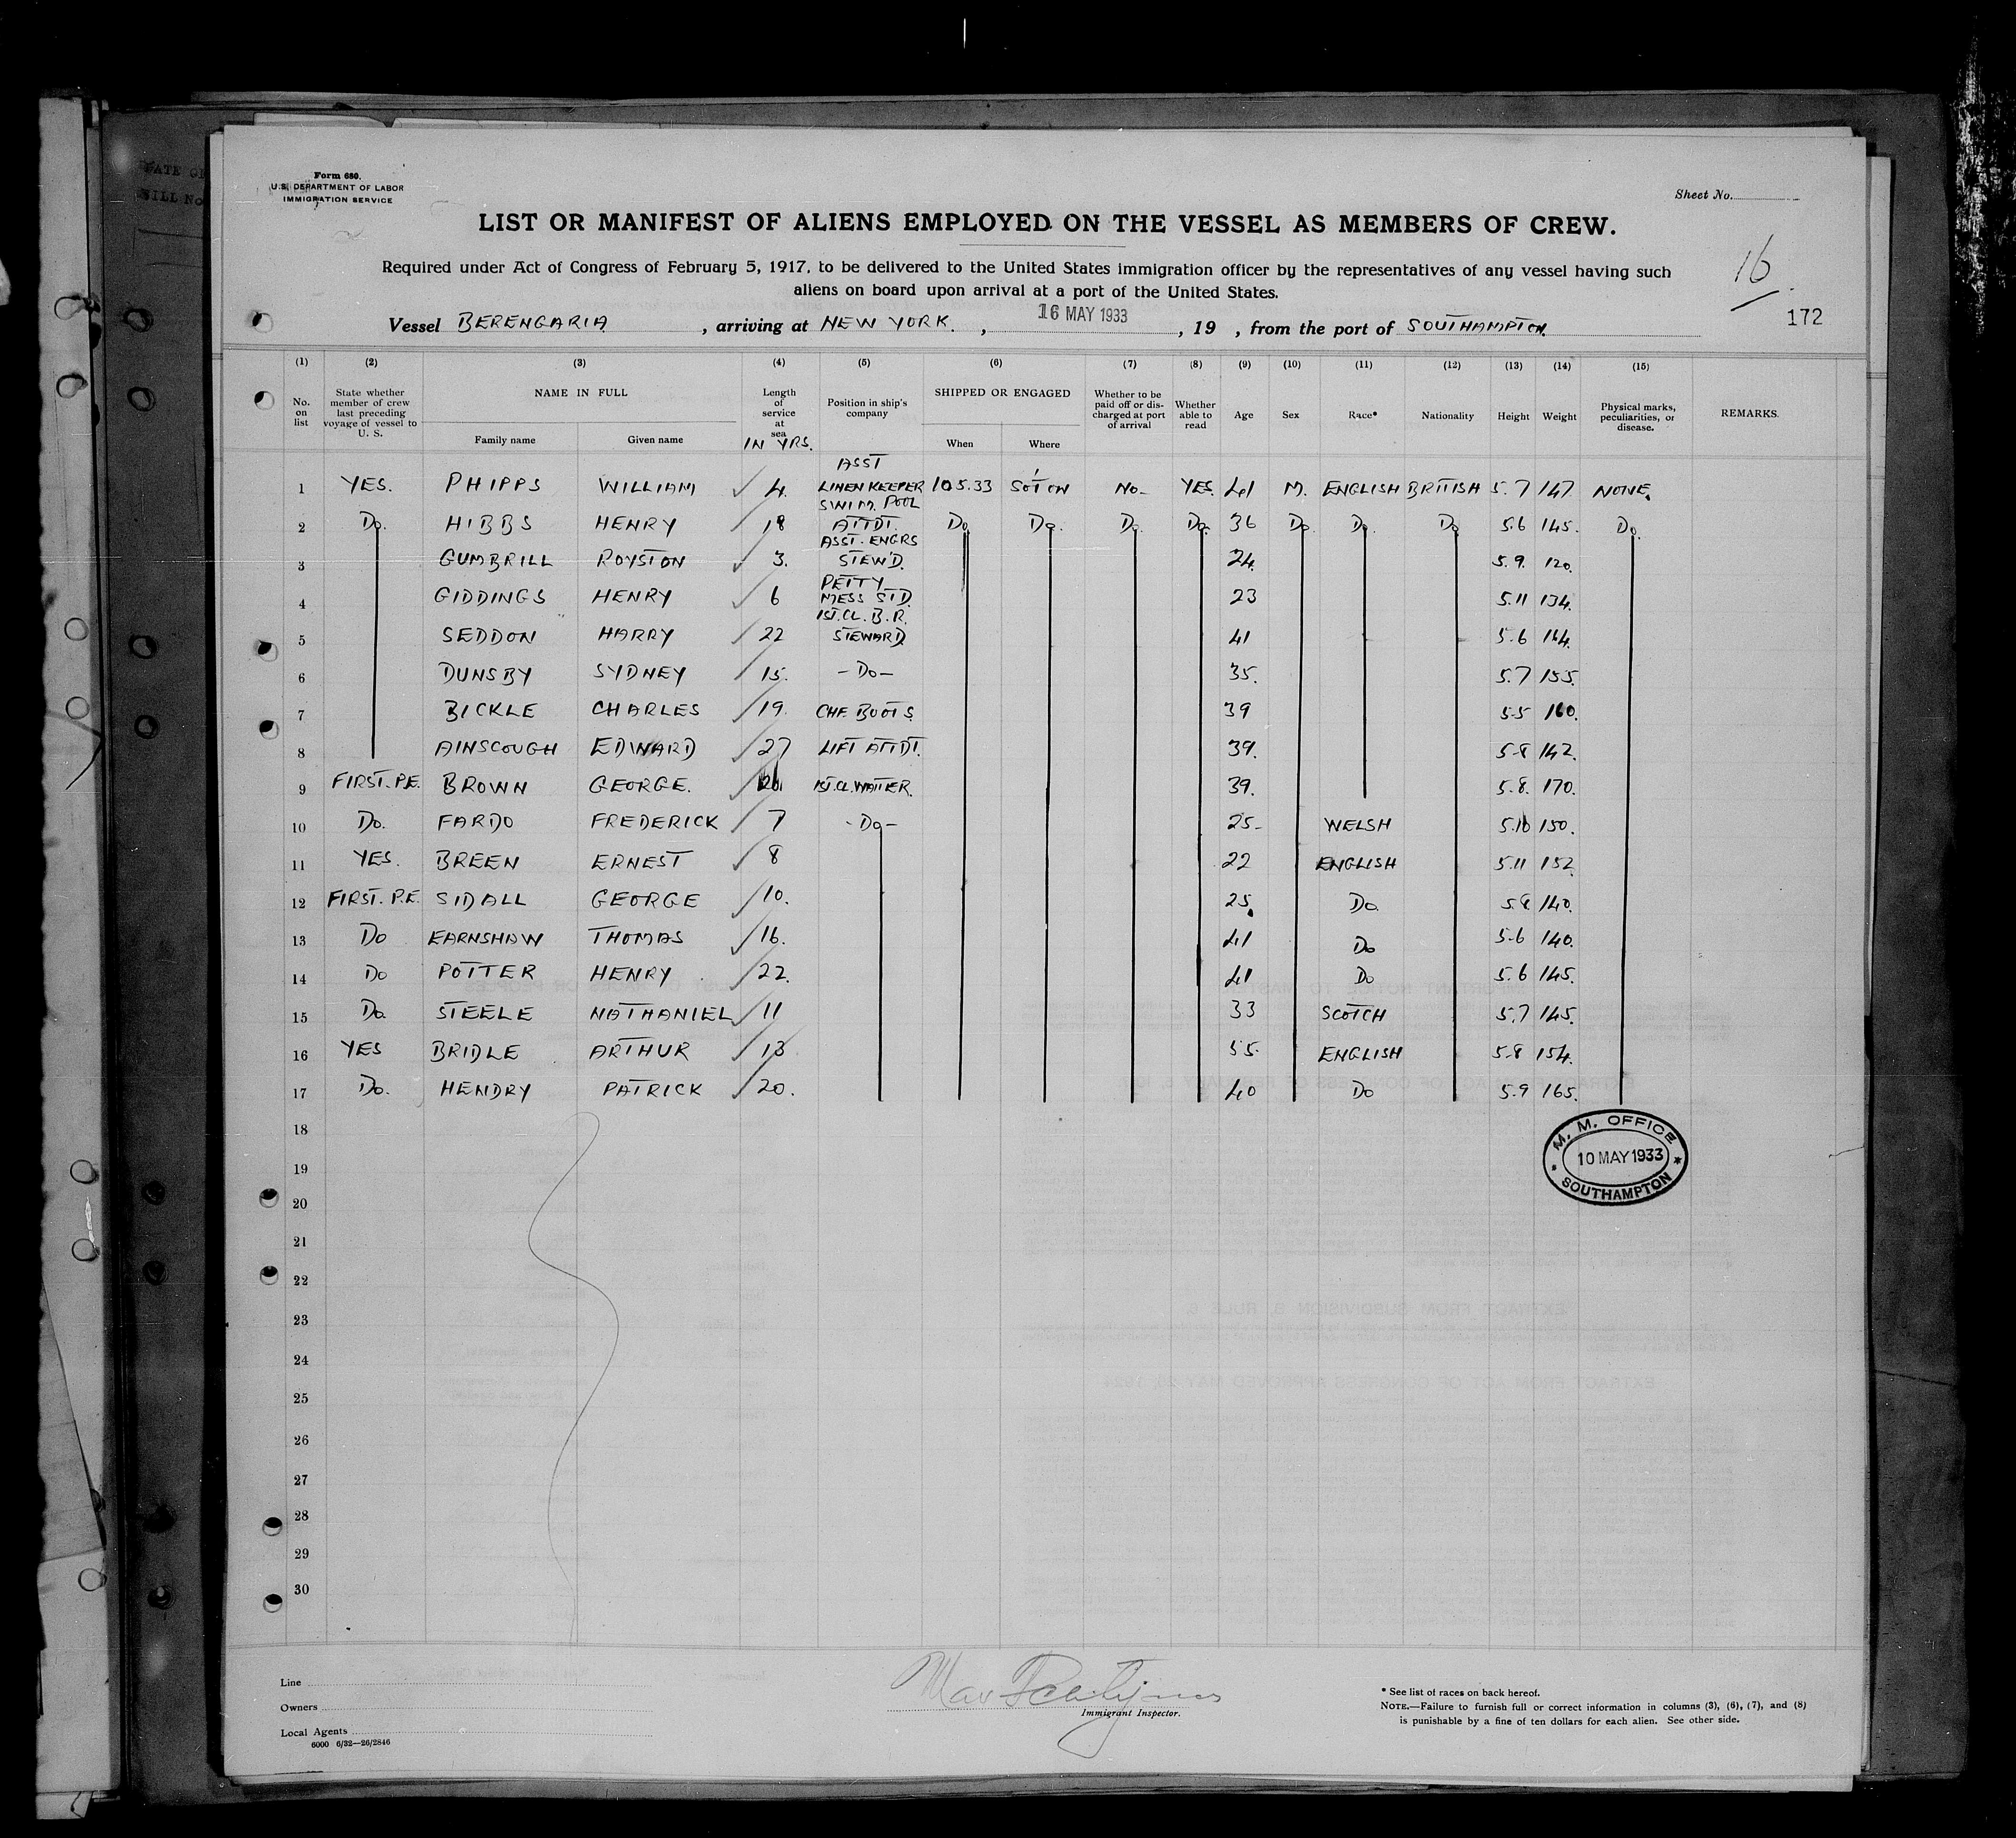 Form 680.
U.S. DEPARTMENT OF LABOR
IMMIGRATION SERVICE
Sheet No.
LIST OR MANIFEST OF ALIENS EMPLOYED ON THE VESSEL AS MEMBERS OF CREW.
Required under Act of Congress of February 5, 1917, to be delivered to the United States immigration officer by the representatives of any vessel having such
aliens on board upon arrival at a port of the United States.
16
172
Vessel BERENGARIA , arriving at NEW YORK. , 16 MAY 1933 , 19 , from the port of SOUTHAMPTON.
(1) (2) (3) (4) (5) (6) (7) (8) (9) (10) (11) (12) (13) (14) (15)
No. on list State whether member of crew last preceding voyage of vessel to U. S. NAME IN FULL Family name Given name Length of service at sea IN YRS. Position in ship's company SHIPPED OR ENGAGED When Where Whether to be paid off or discharged at port of arrival Whether able to read Age Sex Race* Nationality Height Weight Physical marks, peculiarities, or disease. REMARKS.
1 YES. PHIPPS WILLIAM 4. ASST LINEN KEEPER 10.5.33 SOTON NO- YES. 41 M. ENGLISH BRITISH 5.7 147 NONE.
2 Do. HIBBS HENRY 18 SWIM. POOL ATTDT. Do Do. Do Do. 36 Do Do. Do 5.6 145. Do.
3 GUMBRILL ROYSTON 3. ASST. ENGRS STEW'D. 24. 5.9. 120.
4 GIDDINGS HENRY 6 PETTY MESS STD. 23 5.11 134.
5 SEDDON HARRY 22 1ST.CL. B.R. STEWARD. 41 5.6 164.
6 DUNSBY SYDNEY 15. -Do- 35. 5.7 155.
7 BICKLE CHARLES 19. CHF. BOOTS 39 5.5 160.
8 AINSCOUGH EDWARD 27 LIFT ATTDT. 39. 5.8 142.
9 FIRST. P.E. BROWN GEORGE. 1ST.CL.WAITER. 39. 5.8. 170.
10 Do. FARDO FREDERICK 7 -Do- 25- WELSH 5.10 150.
11 YES. BREEN ERNEST 8 22 ENGLISH 5.11 152
12 FIRST. P.E. SIDALL GEORGE 10. 25. Do. 5.8 140.
13 Do EARNSHAW THOMAS 16. 41 Do 5.6 140.
14 Do POTTER HENRY 22. 41 Do 5.6 145.
15 Do STEELE NATHANIEL 11 33 SCOTCH 5.7 145.
16 YES BRIDLE ARTHUR 13 55. ENGLISH 5.8 154.
17 Do. HENDRY PATRICK 20. 40 Do 5.9 165.
18
19
20
21
22
23
24
25
26
27
28
29
30
M. M. OFFICE
10 MAY 1933
SOUTHAMPTON
Line
Owners
Local Agents
6000 6/32—26/2846
Immigrant Inspector.
* See list of races on back hereof.
NOTE.—Failure to furnish full or correct information in columns (3), (6), (7), and (8)
is punishable by a fine of ten dollars for each alien. See other side.